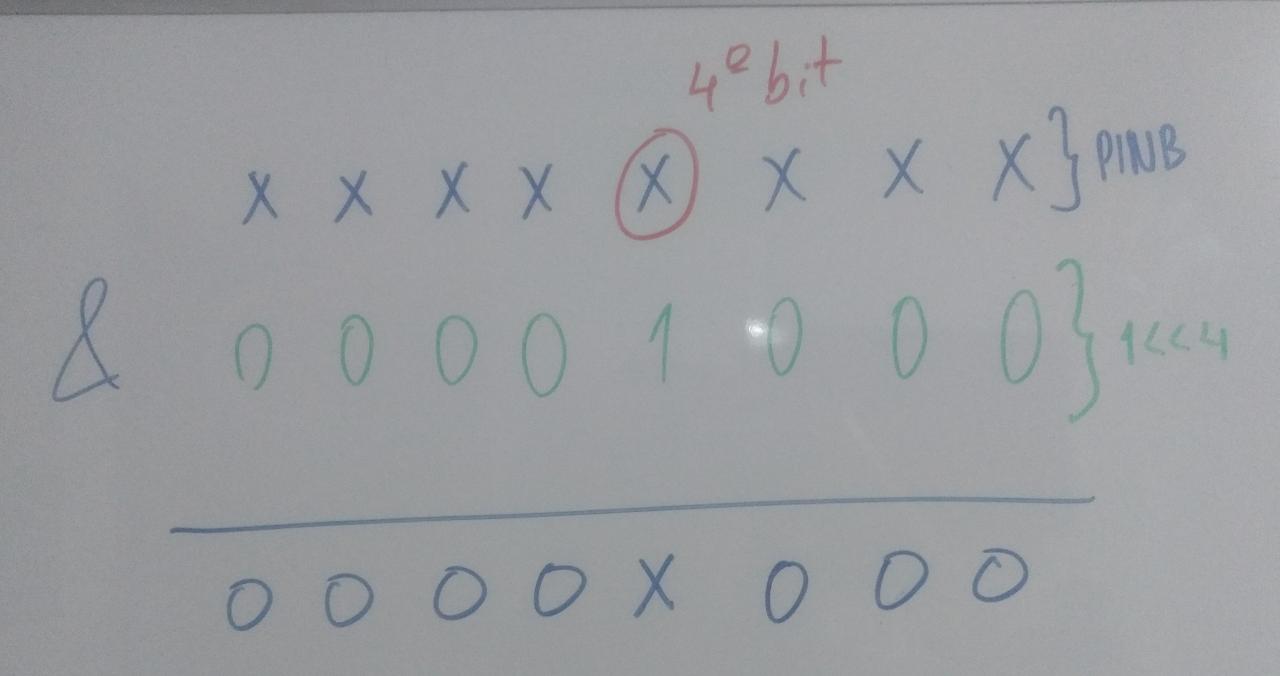 4º bit
X X X X X X X X } PINB
& 0 0 0 0 1 0 0 0 } 1<<4
0 0 0 0 X 0 0 0